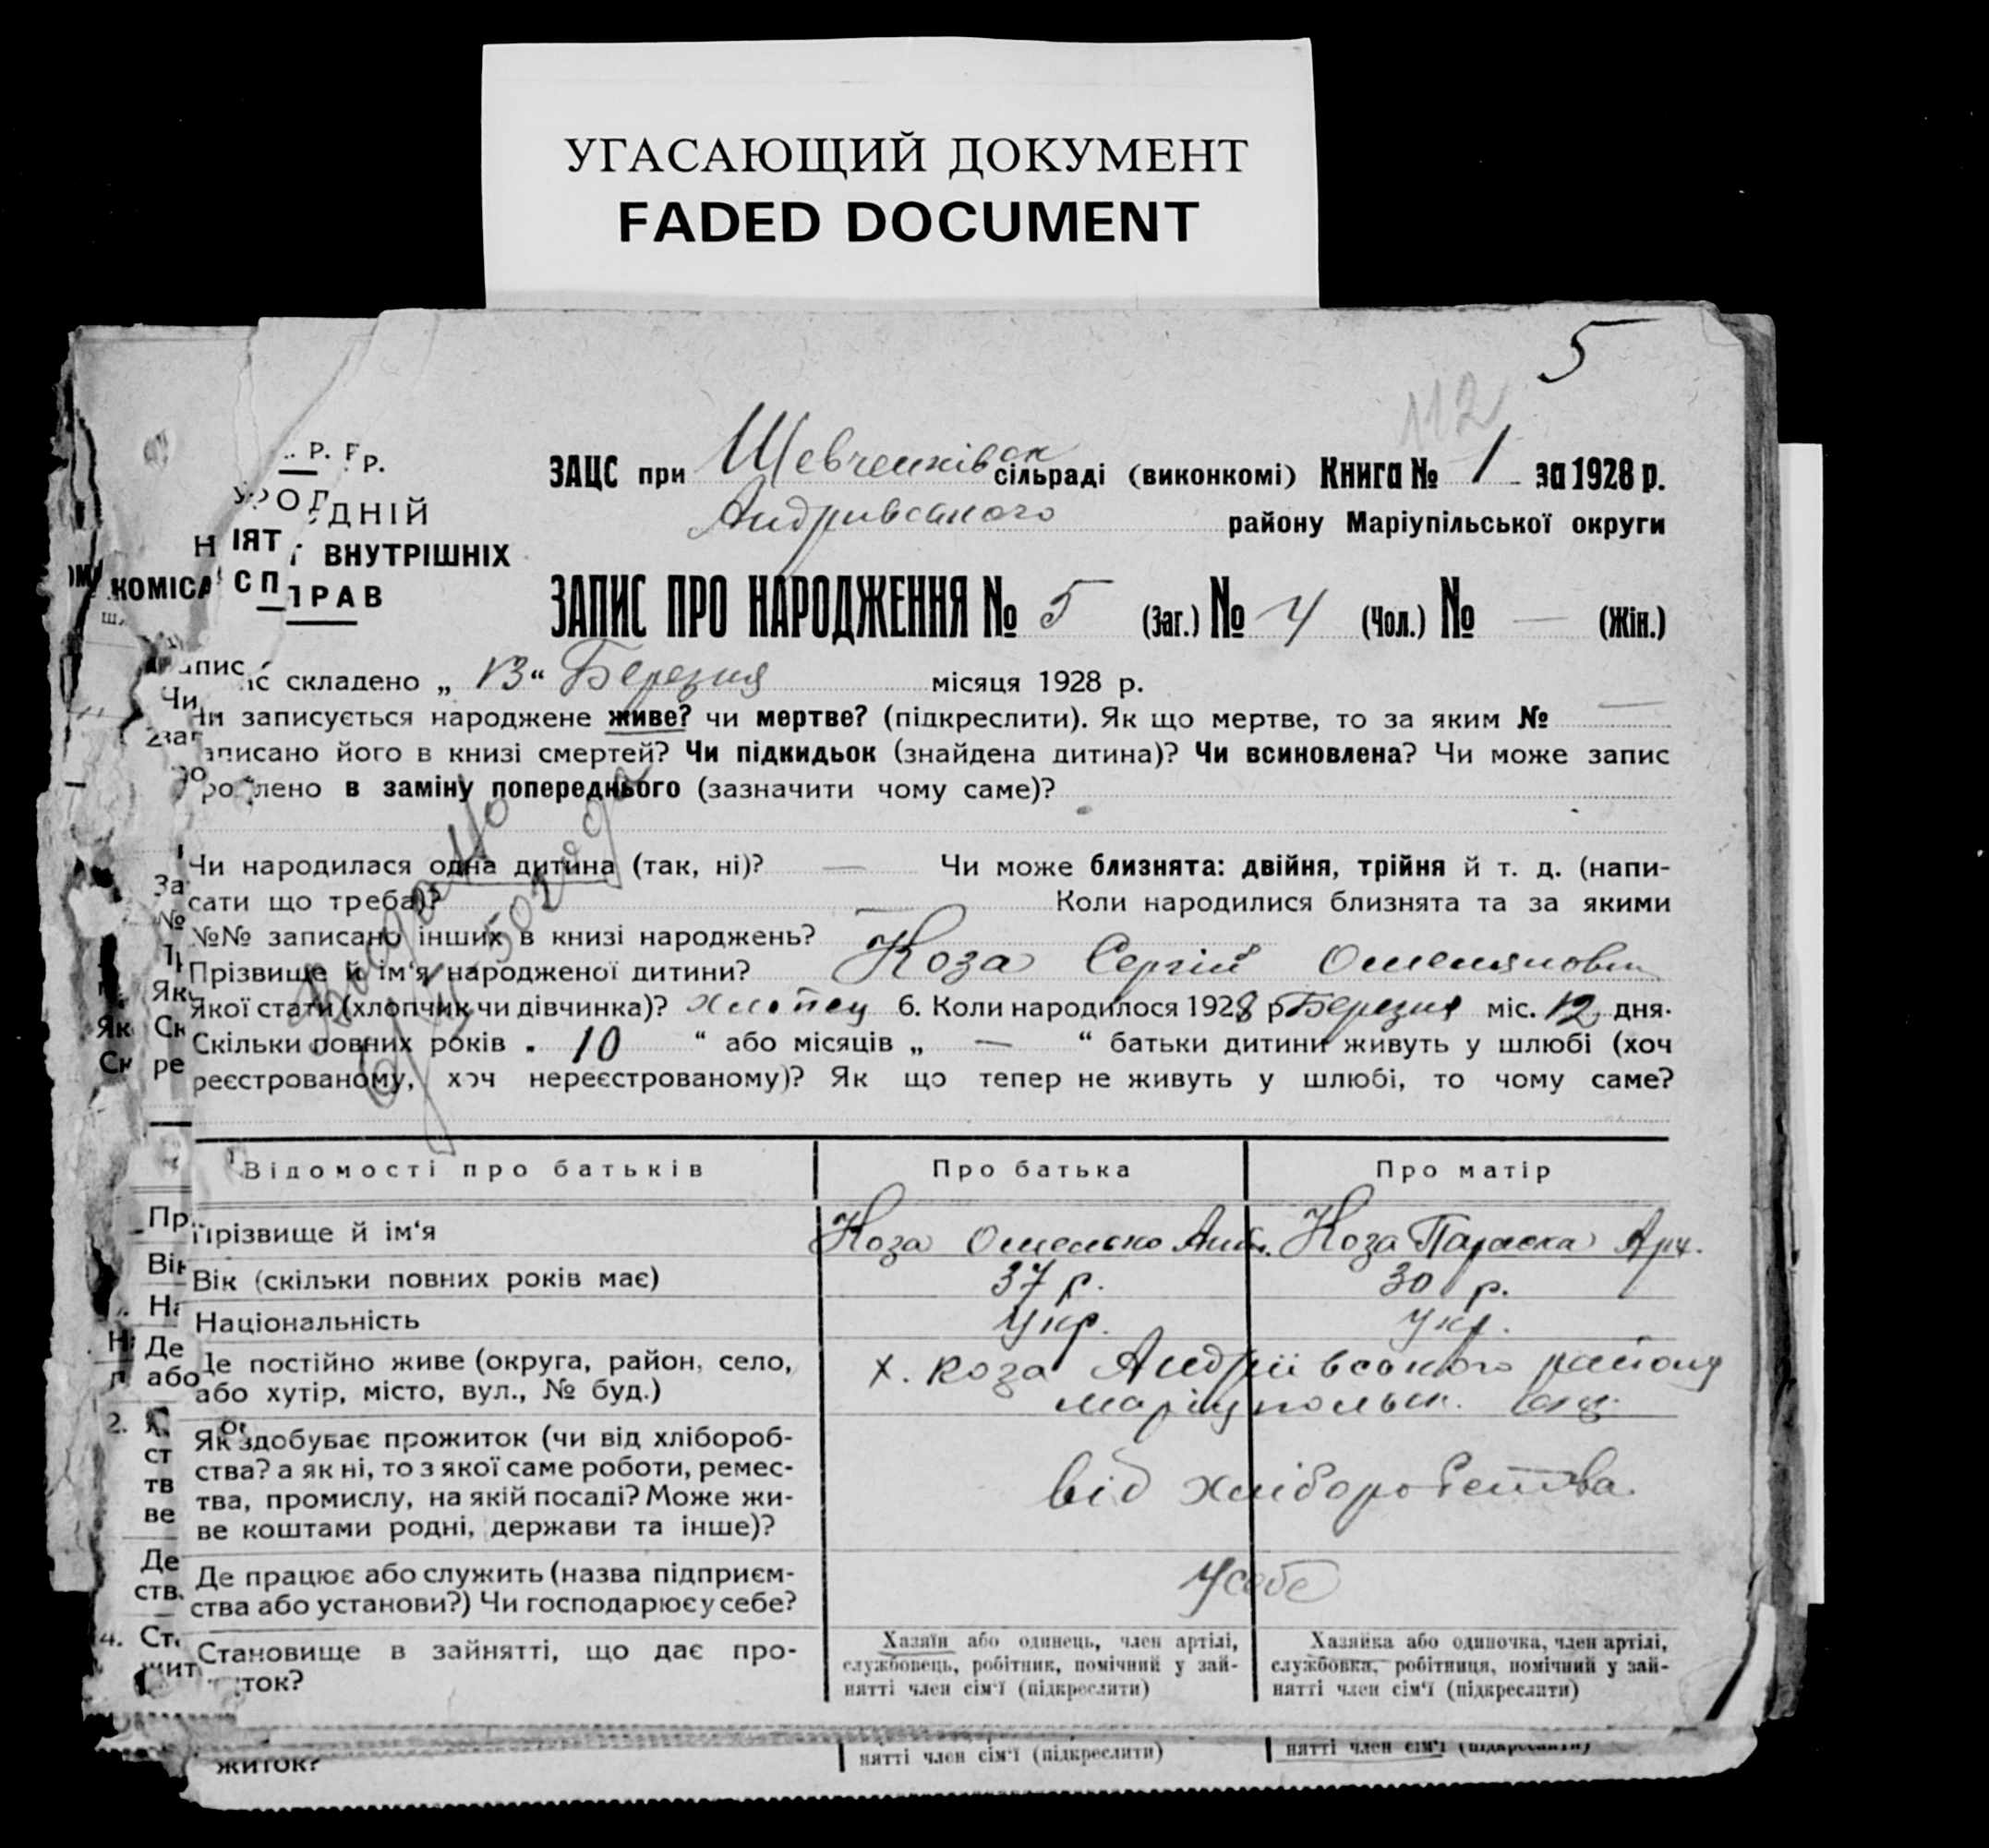 УГАСАЮЩИЙ ДОКУМЕНТ
FADED DOCUMENT
5
112
ЗАЦС при Шевченківск сільраді (виконкомі) Книга № 1 за 1928 р.
Андріівського району Маріупільської округи
ДНІЙ
ВНУТРІШНІХ
КОМІСА СПРАВ
ЗАПИС ПРО НАРОДЖЕННЯ № 5 (Заг.) № 4 (Чол.) № — (Жін.)
складено „ 13 “ Березня місяця 1928 р.
Чи записується народжене живе? чи мертве? (підкреслити). Як що мертве, то за яким № —
записано його в книзі смертей? Чи підкидьок (знайдена дитина)? Чи всиновлена? Чи може запис
в заміну попереднього (зазначити чому саме)?
Чи народилася одна дитина (так, ні)? — Чи може близнята: двійня, трійня й т. д. (напи-
сати що треба)? — Коли народилися близнята та за якими
№№ записано інших в книзі народжень?
Прізвище й ім‘я народженої дитини? Коза Сергій Омелянович
Якої стати (хлопчик чи дівчинка)? хлопец 6. Коли народилося 1928 р. Березня міс. 12 дня.
Скільки повних років „ 10 “ або місяців „ — “ батьки дитини живуть у шлюбі (хоч
реєстрованому, хоч нереєстрованому)? Як що тепер не живуть у шлюбі, то чому саме?
Видано
Відомості про батьків Про батька Про матір
Прізвище й ім‘я Коза Омелько Коза Параска
Вік (скільки повних років має) 37 р. 30 р.
Національність Укр. Укр.
Де постійно живе (округа, район, село, х. Коза Андріівського району
або хутір, місто, вул., № буд.) Маріупольск. окр.
Як здобуває прожиток (чи від хлібороб-
ства? а як ні, то з якої саме роботи, ремес- від хліборобства
тва, промислу, на якій посаді? Може жи-
ве коштами родні, держави та інше)?
Де працює або служить (назва підприєм- У себе
ства або установи?) Чи господарює у себе?
Становище в зайнятті, що дає про- Хазяїн або одинець, член артілі, Хазяйка або одиночка, член артілі,
службовець, робітник, помічний у зай- службовка, робітниця, помічний у зай-
ток? нятті член сім‘ї (підкреслити) нятті член сім‘ї (підкреслити)
житок? нятті член сім‘ї (підкреслити) нятті член сім‘ї (підкреслити)